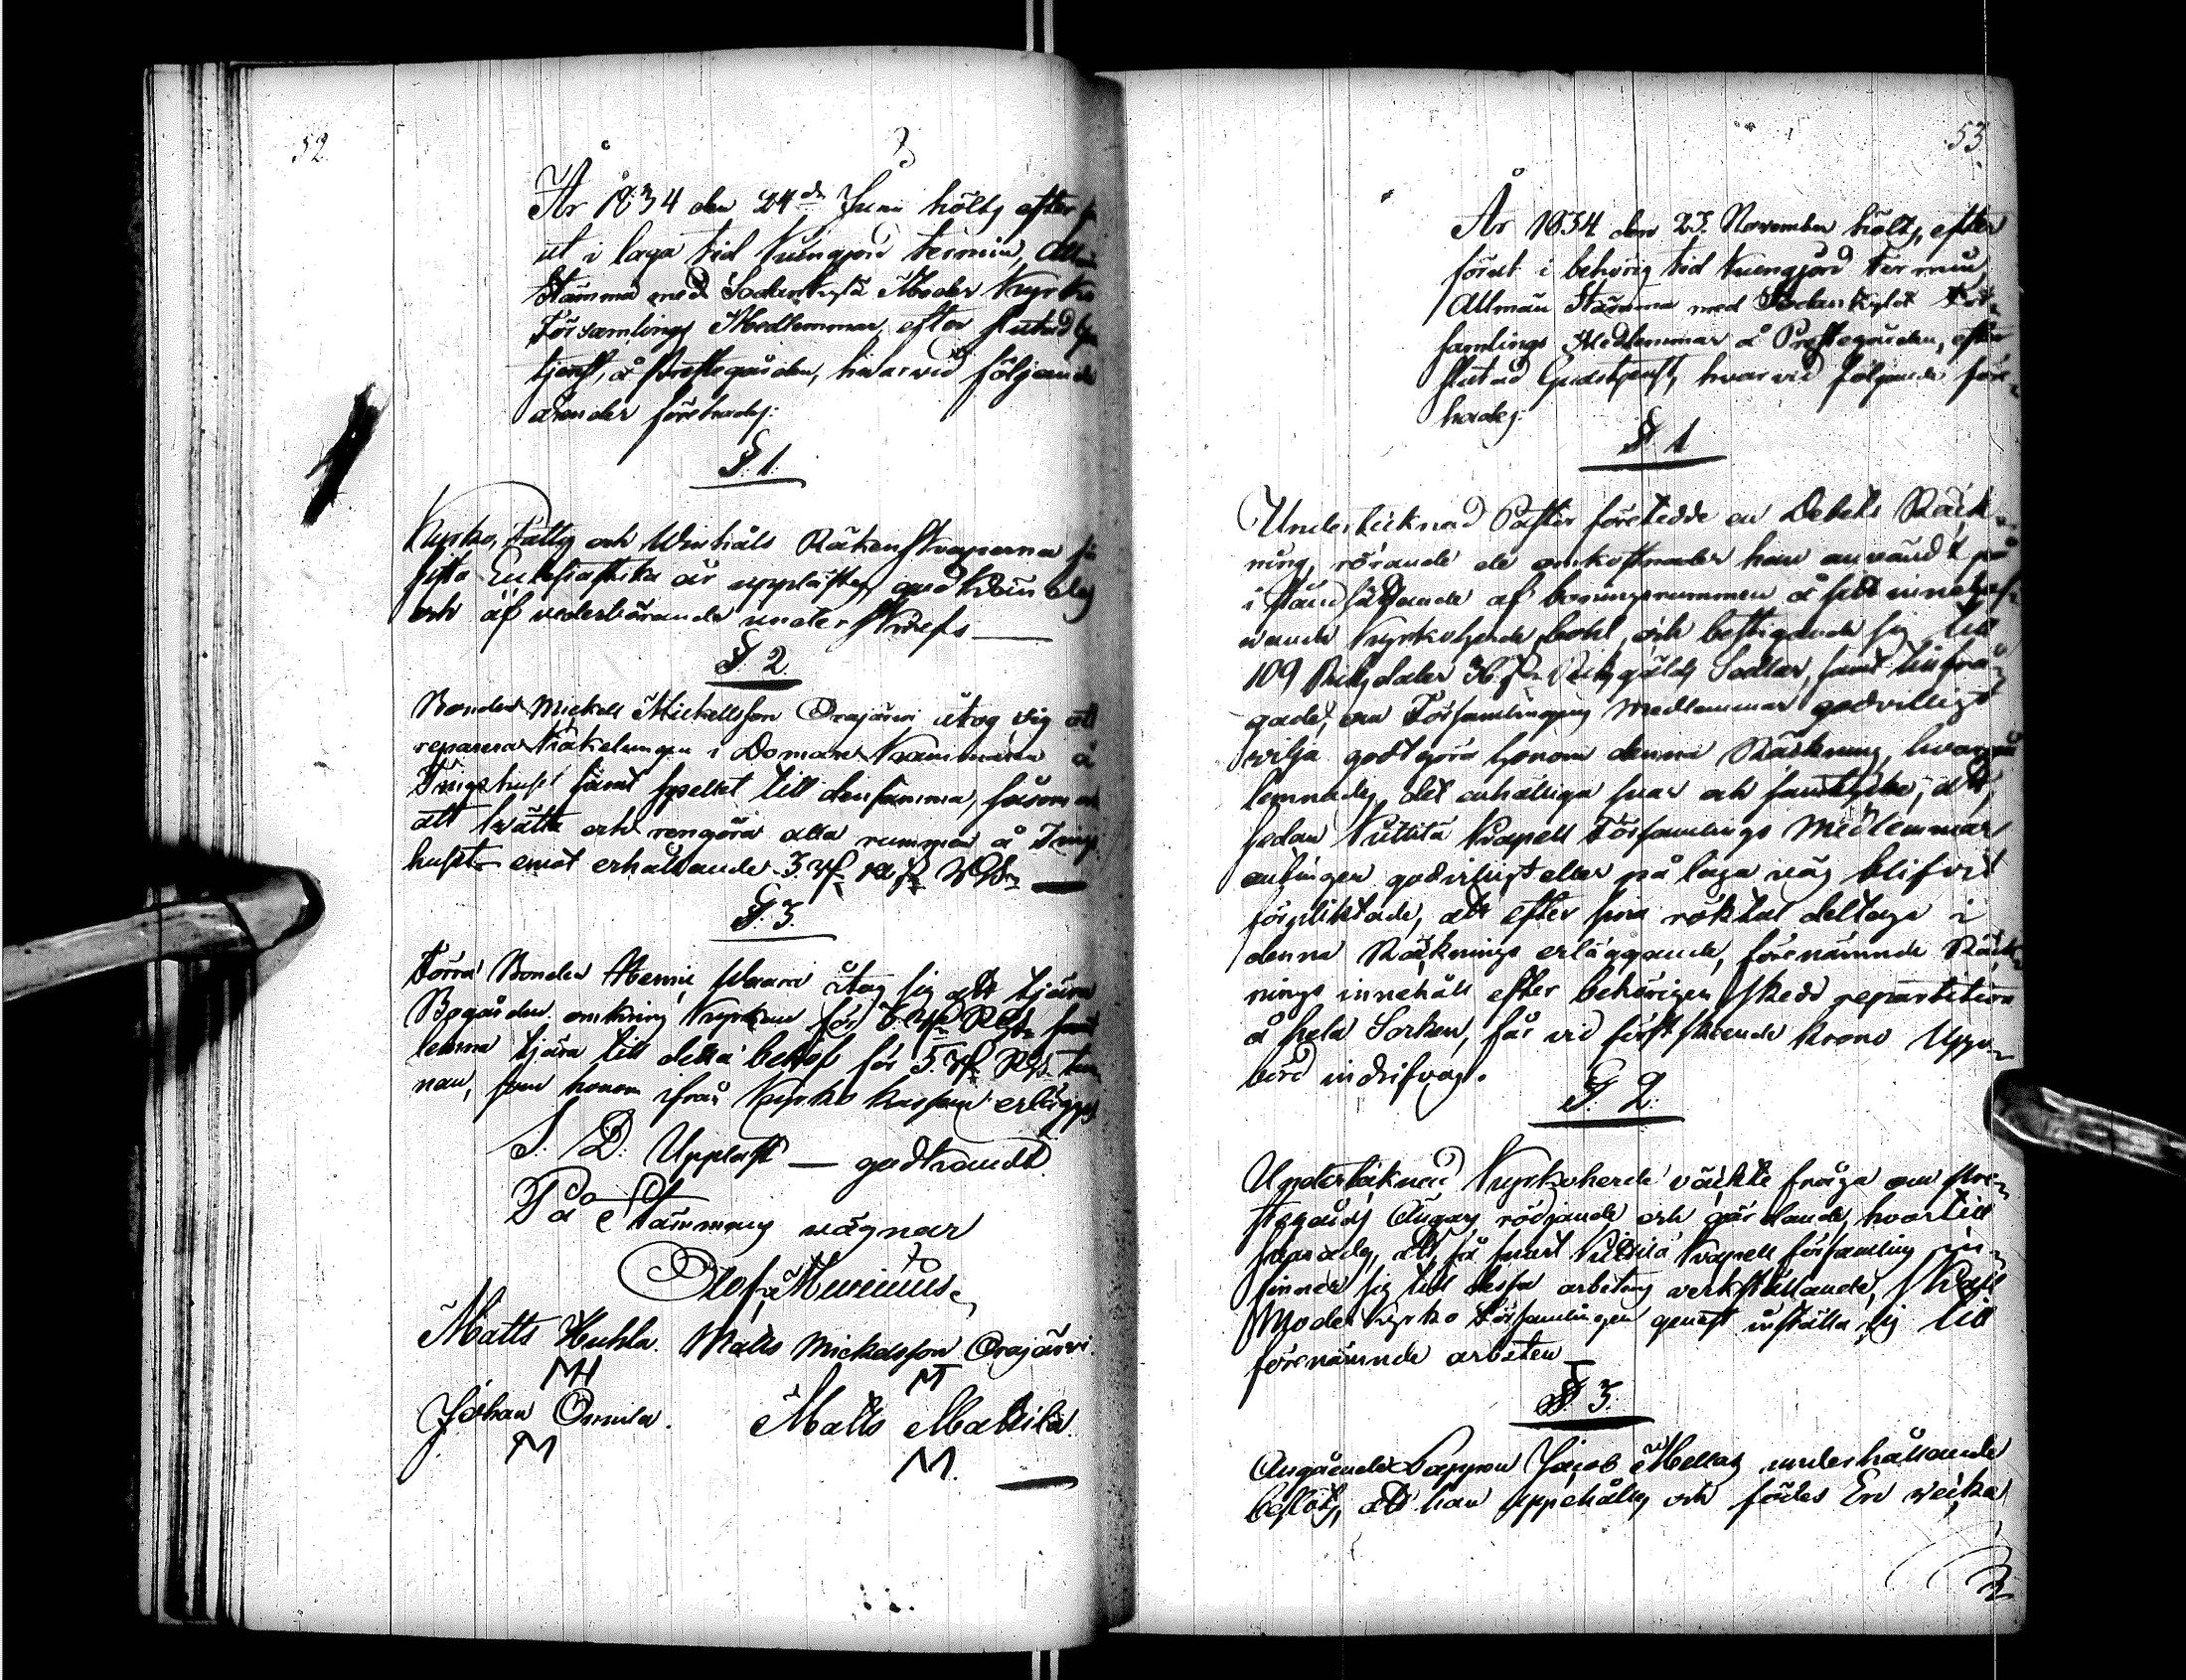 52
År 1834 den 24de Juni hölts efter
ut i laga tid kungjord termin, Allmän
Stämma med Sodankylä Moder Kyrko
Församlings Medlemmar, efter slutad Guds
tjenst, å Prestegården, hvarvid följande
ärender förehades:
§. 1.
Kyrko, Fattig och Winhåls Räkenskaperna för
sista Eclesiastika år upplästes, godkändes
och af vederbörande underskrefs
§ 2.
Bonden Mickel Mickellsson Orajärvi åtog sig att
reparera Kakelungen i Domare Kammaren å
Tingshuset samt spellet till densamma, såsom och
att tvätta och rengöra alla rummen å Tings
huset emot erhållande 3.
§. 3.
Förra Bonden Henric Waara åtog sig att tjära
Bogården omkring Kyrkan för
lemna tjära till detta behof för 5. tun
nan, som honom ifrån Kyrko kassan erlägges
S. D. Uppläst — godkändt
På Stämmans vägnar
Olof Murenius
Matts Huhla. Matts Mickelsson Orajärvi.
MH M
Johan Onnela. Matts Mattila
M M.
53
År 1834 den 23. November hölts, efter
förut i behörig tid kungjord termin,
Allmän Stämma med Sodankylä För-
samlings Medlemmar å Prestegården, efter
slutad Gudstjenst, hvarvid följande före-
hades:
§ 1
Undertecknad Pastor företedde en Debets Räck-
ning, rörande de omkostnader han användt på
i ståndsättande af boningsrummen å sitt innehaf-
wande Kyrkoherde bohl, och bestigande sig till
109 Riksdaler Riksgälds Sedlar, samt tillfrå-
gade, om Församlingens Medlemmar godvilligt
vilja godtgöra honom denna Räckning, hvarpå
lemnades det enhälliga svar och samtycke, att,
sedan Kittilä Kapell Församlings Medlemmar
antingen godvilligt eller på laga väg blifvit
förpliktade, att efter sina röktal deltaga i
denna Räcknings erläggande, förenämnde Räck-
nings innehåll efter behörigen skedd repartition
å hela Socken, får vid först skeende krono Upp-
börd indrifvas.
§. 2.
Undertecknad Kyrkoherde väckte fråga om Pre-
stegårds Ängars rödjande och gärdande, hvartill
svarades, att så snart Kittilä Kapell församling in-
finner sig till dessa arbetens verkställande, skall
Moder kyrko Församlingen genast inställa sig till
förenämnde arbeten
§ 3.
Angående Lappen Jacob Mellas underhållande
beslöts, att han uppehålles och födes En vecka